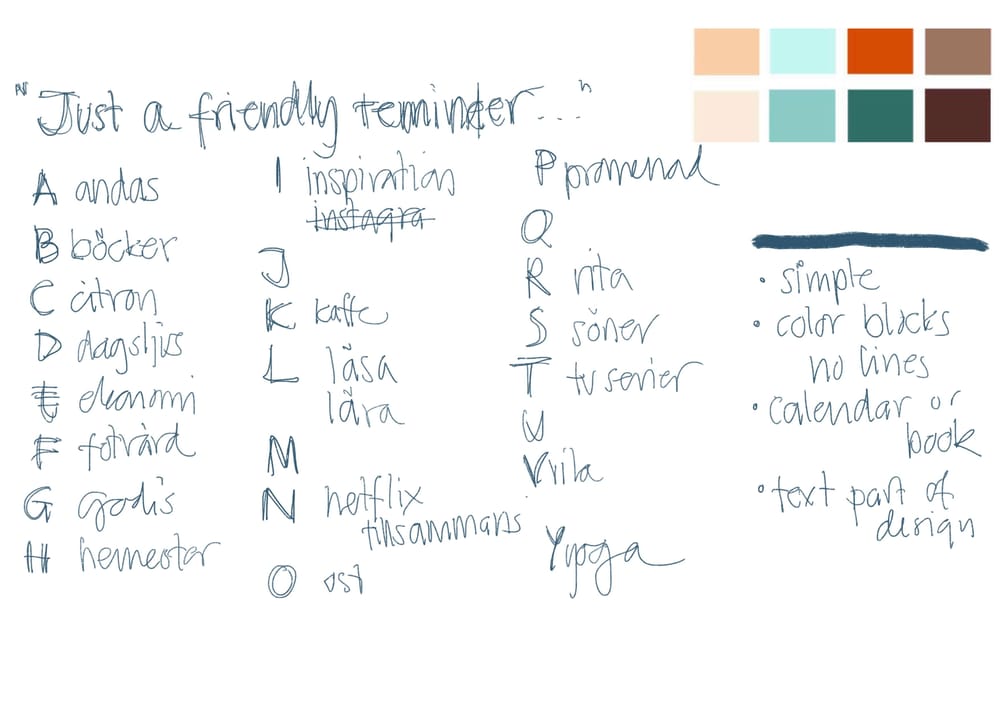 "Just a friendly reminder..."
A andas
B böcker
C citron
D dagsljus
E ekonomi
F fotvård
G godis
H hemester
I inspiration
instagra
J
K kaffe
L läsa
lära
M
N netflix
tillsammans
O ost
P promenad
Q
R rita
S söner
T tv serier
U
V vila
Y yoga
• simple
• color blocks
no lines
• calendar or
book
• text part of
design